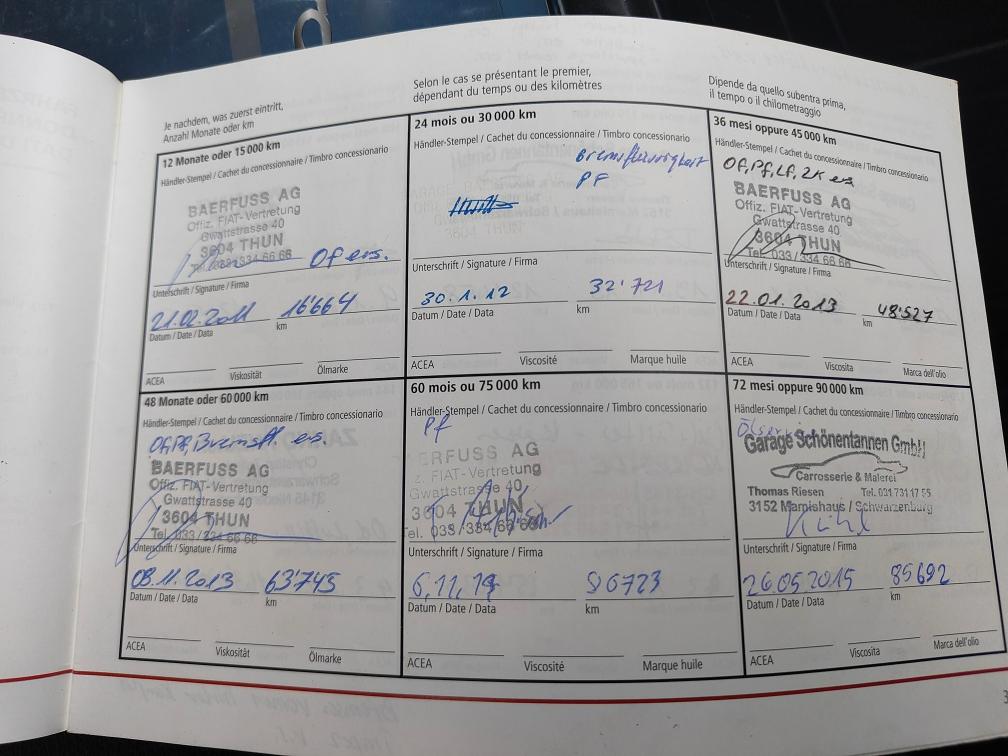 Je nachdem, was zuerst eintritt,
Anzahl Monate oder km
Selon le cas se présentant le premier,
dépendant du temps ou des kilomètres
Dipende da quello subentra prima,
il tempo o il chilometraggio
12 Monate oder 15 000 km
Händler-Stempel / Cachet du concessionnaire / Timbro concessionario
BAERFUSS AG
Offiz. FIAT-Vertretung
Gwattstrasse 40
3604 THUN
Tel. 033/334 66 66
Of ers.
Unterschrift / Signature / Firma
21.02.2011 16'664
Datum / Date / Data km
ACEA Viskosität Ölmarke
24 mois ou 30 000 km
Händler-Stempel / Cachet du concessionnaire / Timbro concessionario
Bremsflüssigkeit
PF
Unterschrift / Signature / Firma
30.1.12 32'721
Datum / Date / Data km
ACEA Viscosité Marque huile
36 mesi oppure 45 000 km
Händler-Stempel / Cachet du concessionnaire / Timbro concessionario
OF, PF, LF, ZK ers.
BAERFUSS AG
Offiz. FIAT-Vertretung
Gwattstrasse 40
3604 THUN
Tel. 033/334 66 66
Unterschrift / Signature / Firma
22.01.2013 48'527
Datum / Date / Data km
ACEA Viscosita Marca dell'olio
48 Monate oder 60 000 km
Händler-Stempel / Cachet du concessionnaire / Timbro concessionario
Of, Pf, Bremsfl. ers.
BAERFUSS AG
Offiz. FIAT-Vertretung
Gwattstrasse 40
3604 THUN
Tel. 033/334 66 66
Unterschrift / Signature / Firma
08.11.2013 63'745
Datum / Date / Data km
ACEA Viskosität Ölmarke
60 mois ou 75 000 km
Händler-Stempel / Cachet du concessionnaire / Timbro concessionario
Pf
ERFUSS AG
z. FIAT-Vertretung
Gwattstrasse 40
3604 THUN
Tel. 033/334 66 66
Unterschrift / Signature / Firma
6.11.14 86723
Datum / Date / Data km
ACEA Viscosité Marque huile
72 mesi oppure 90 000 km
Händler-Stempel / Cachet du concessionnaire / Timbro concessionario
Garage Schönentannen GmbH
Carrosserie & Malerei
Thomas Riesen Tel. 031 731 17 55
3152 Mamishaus / Schwarzenburg
Unterschrift / Signature / Firma
26.05.2015 85692
Datum / Date / Data km
ACEA Viscosita Marca dell'olio